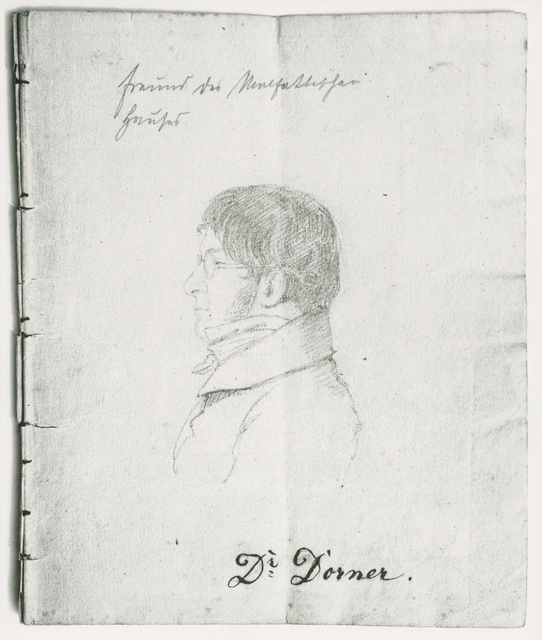 Freund des Malfattischen
Hauses
Dr Dorner.